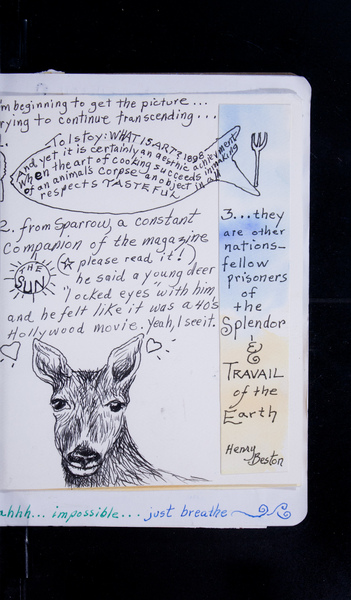 I'm beginning to get the picture...
trying to continue transcending...
Tolstoy: WHAT IS ART? 1898
And yet it is certainly an aesthetic achievement
When the art of cooking succeeds in making
of an animal's corpse an object in all
respects TASTEFUL
2. from Sparrow, a constant
companion of the magazine
THE
SUN
☆ please read it!)
he said a young deer
"locked eyes" with him,
and he felt like it was a 40's
Hollywood movie. Yeah, I see it.
3...they
are other
nations—
fellow
prisoners
of
the
Splendor
&
TRAVAIL
of the
Earth
Henry
Beston
ahhh... impossible... just breathe